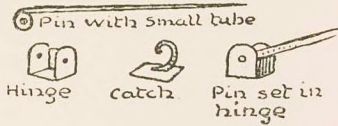 Pin with small tube
Hinge
Catch
Pin set in
hinge